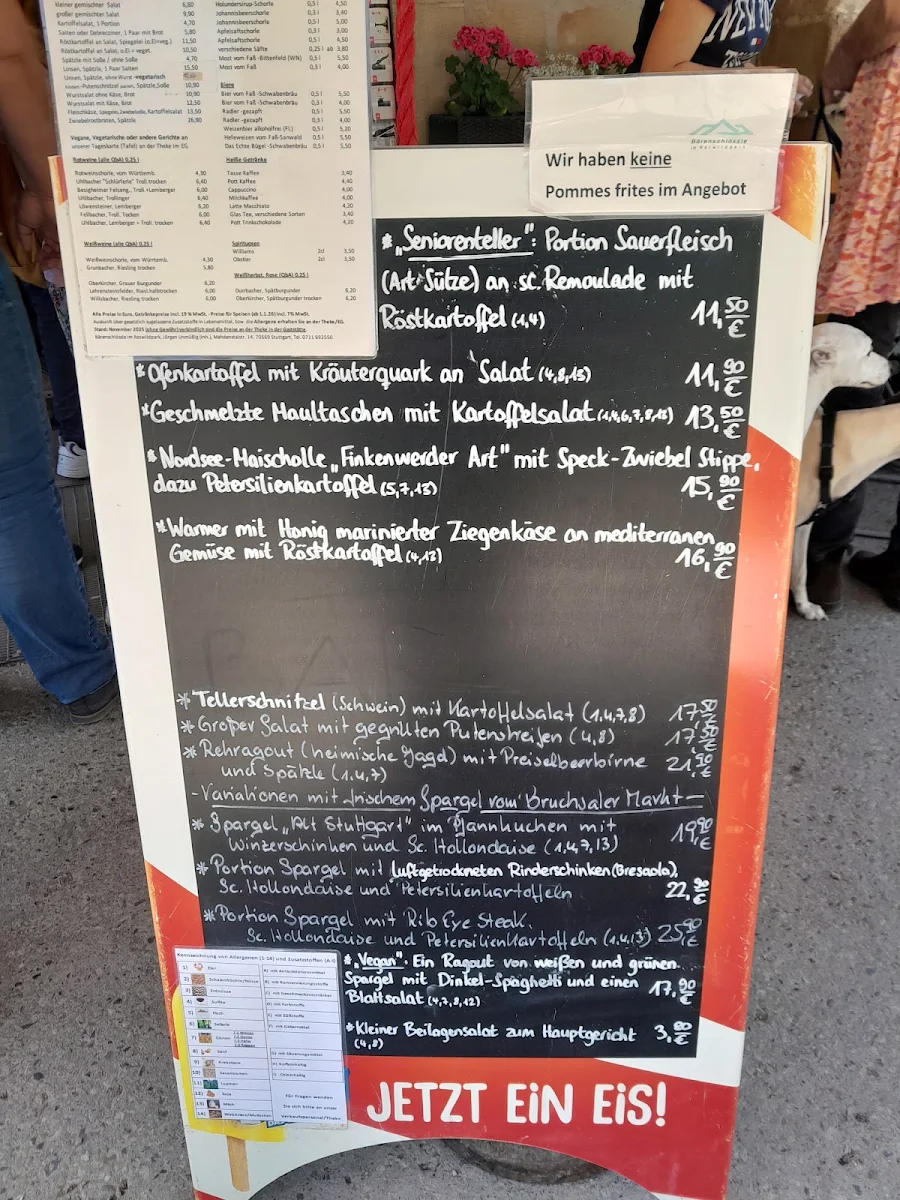 kleiner gemischter Salat 6,80
großer gemischter Salat 9,90
Kartoffelsalat, 1 Portion 4,70
Saiten oder Debrecziner, 1 Paar mit Brot 5,80
Röstkartoffel an Salat, Spiegelei 11,50
Röstkartoffel an Salat, 10,50
Spätzle mit Soße / ohne Soße 4,70
Linsen, Spätzle, 1 Paar Saiten 15,50
Linsen, Spätzle, ohne Wurst -vegetarisch
Putenschnitzel paniert, Spätzle,Soße 10,90
Wurstsalat ohne Käse, Brot 10,90
Wurstsalat mit Käse, Brot 12,50
Fleischküchle, Spiegelei, Zwiebelsoße, Kartoffelsalat 13,50
Zwiebelrostbraten, Spätzle 26,90
Vegane, Vegetarische oder andere Gerichte an
unserer Tageskarte (Tafel) an der Theke im EG.
Rotweine (alle QbA) 0,25 l
Rotweinschorle, vom Württemb. 4,30
Uhlbacher "Schlürferle" Troll.trocken 6,40
Besigheimer Felseng., Troll.+Lemberger 6,00
Uhlbacher, Trollinger 6,40
Löwensteiner, Lemberger 5,20
Fellbacher, Troll. Tocken 6,00
Uhlbacher, Lemberger + Troll. trocken 6,40
Weißweine (alle QbA) 0,25 l
Weißweinschorle, vom Württemb. 4,30
Grunbacher, Riesling trocken 5,80
Oberkircher, Grauer Burgunder 6,20
Lehrensteinsfelder, Riesl.halbtrocken 6,00
Willsbacher, Riesling trocken 6,00
Holundersirup-Schorle 0,5 l 4,50
Johannisbeerschorle 0,3 l 3,40
Johannisbeerschorle 0,5 l 5,00
Apfelsaftschorle 0,3 l 3,00
Apfelsaftschorle 0,5 l 4,50
verschiedene Säfte 0,25 l ab 3,80
Most vom Faß -Bittenfeld (WN) 0,5 l 5,50
Most vom Faß 0,3 l 4,00
Biere
Bier vom Faß -Schwabenbräu 0,5 l 5,50
Bier vom Faß -Schwabenbräu 0,3 l 4,00
Radler -gezapft 0,5 l 5,50
Radler -gezapft 0,3 l 4,00
Weizenbier alkoholfrei (Fl.) 0,5 l 5,20
Hefeweizen vom Faß-Sanwald 0,5 l 5,50
Das Echte Bügel -Schwabenbräu 0,5 l 5,50
Heiße Getränke
Tasse Kaffee 3,40
Pott Kaffee 4,40
Cappuccino 4,00
Milchkaffee 4,00
Latte Macchiato 4,20
Glas Tee, verschiedene Sorten 3,40
Pott Trinkschokolade 4,20
Spirituosen
Williams 2cl 3,50
Obstler 2cl 3,50
Weißherbst, Rose (QbA) 0,25 l
Durbacher, Spätburgunder 6,20
Oberkircher, Spätburgunder trocken 6,20
Alle Preise in Euro, Getränkepreise incl. 19 % MwSt. - Preise für Speisen (ab 1.1.26) incl. 7% MwSt.
Auskunft über gesetzlich zugelassene Zusatzstoffe in Lebensmittel, bzw. die Allergene erhalten Sie an der Theke/EG.
Stand: November 2025 (ohne Gewähr)verbindlich sind die Preise an der Theke in der Gaststätte.
Bärenschlössle im Rotwildpark, Jürgen Unmüßig (Inh.), Mahdentalstr. 14, 70569 Stuttgart, Tel. 0711 692556
Bärenschlössle
im Rotwildpark
Wir haben keine
Pommes frites im Angebot
* „Seniorenteller": Portion Sauerfleisch
(Art Sülze) an sc. Remoulade mit
Röstkartoffel (1,4) 11,50 €
*Ofenkartoffel mit Kräuterquark an Salat (4,8,13) 11,90 €
*Geschmelzte Maultaschen mit Kartoffelsalat (1,4,6,7,8,13) 13,50 €
*Nordsee-Maischolle „Finkenwerder Art" mit Speck-Zwiebel Stippe,
dazu Petersilienkartoffel (5,7,13) 15,90 €
*Warmer mit Honig marinierter Ziegenkäse an mediterranen
Gemüse mit Röstkartoffel (4,13) 16,90 €
* Tellerschnitzel (Schwein) mit Kartoffelsalat (1.4,7,8) 17,50 €
* Großer Salat mit gegrillten Putenstreifen (4,8) 17,50 €
* Rehragout (heimische Jagd) mit Preiselbeerbirne
und Spätzle (1.4,7) 21,90 €
- Variationen mit frischem Spargel vom Bruchsaler Markt -
* Spargel „Alt Stuttgart" im Pfannkuchen mit
Winzerschinken und Sc. Hollondaise (1,4,7,13) 19,90 €
* Portion Spargel mit luftgetrockneten Rinderschinken (Bresaola),
Sc. Hollondaise und Petersilienkartoffeln 22,90 €
* Portion Spargel mit Rib Eye Steak.
Sc. Hollondaise und Petersilienkartoffeln (1.4,13) 25,90 €
* „Vegan": Ein Ragout von weißen und grünen
Spargel mit Dinkel-Spaghetti und einen
Blattsalat (4,7,8,12) 17,90 €
*Kleiner Beilagensalat zum Hauptgericht 3,80 €
(4,8)
Kennzeichnung von Allergenen (1-14) und Zusatzstoffen (A-I)
1) Eier
5) Fisch
6) Sellerie
8) Senf
11) Lupinen
12) Soja
13) Milch
14) Weichtiere/Mollusken
Für Fragen wenden
Sie sich bitte an unser
Verkaufspersonal/Theke
JETZT EiN EiS!